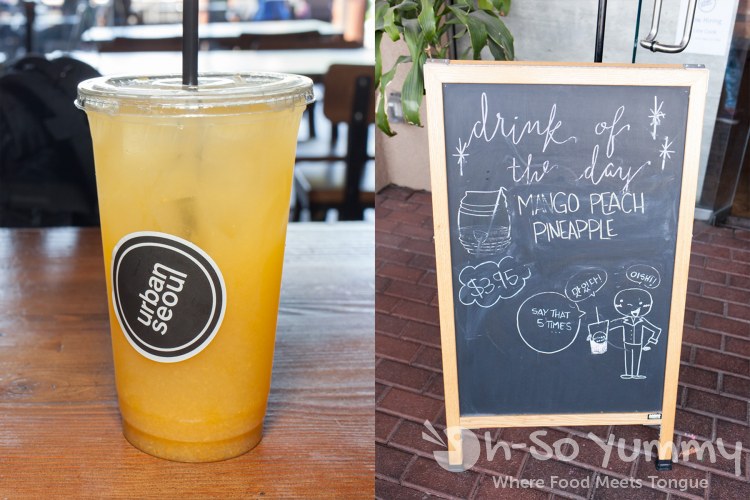 urban
seoul
drink of
the day
MANGO PEACH
PINEAPPLE
$3.95
맛있다!
OISHI!
SAY THAT
5 TIMES
Oh-So Yummy
Where Food Meets Tongue